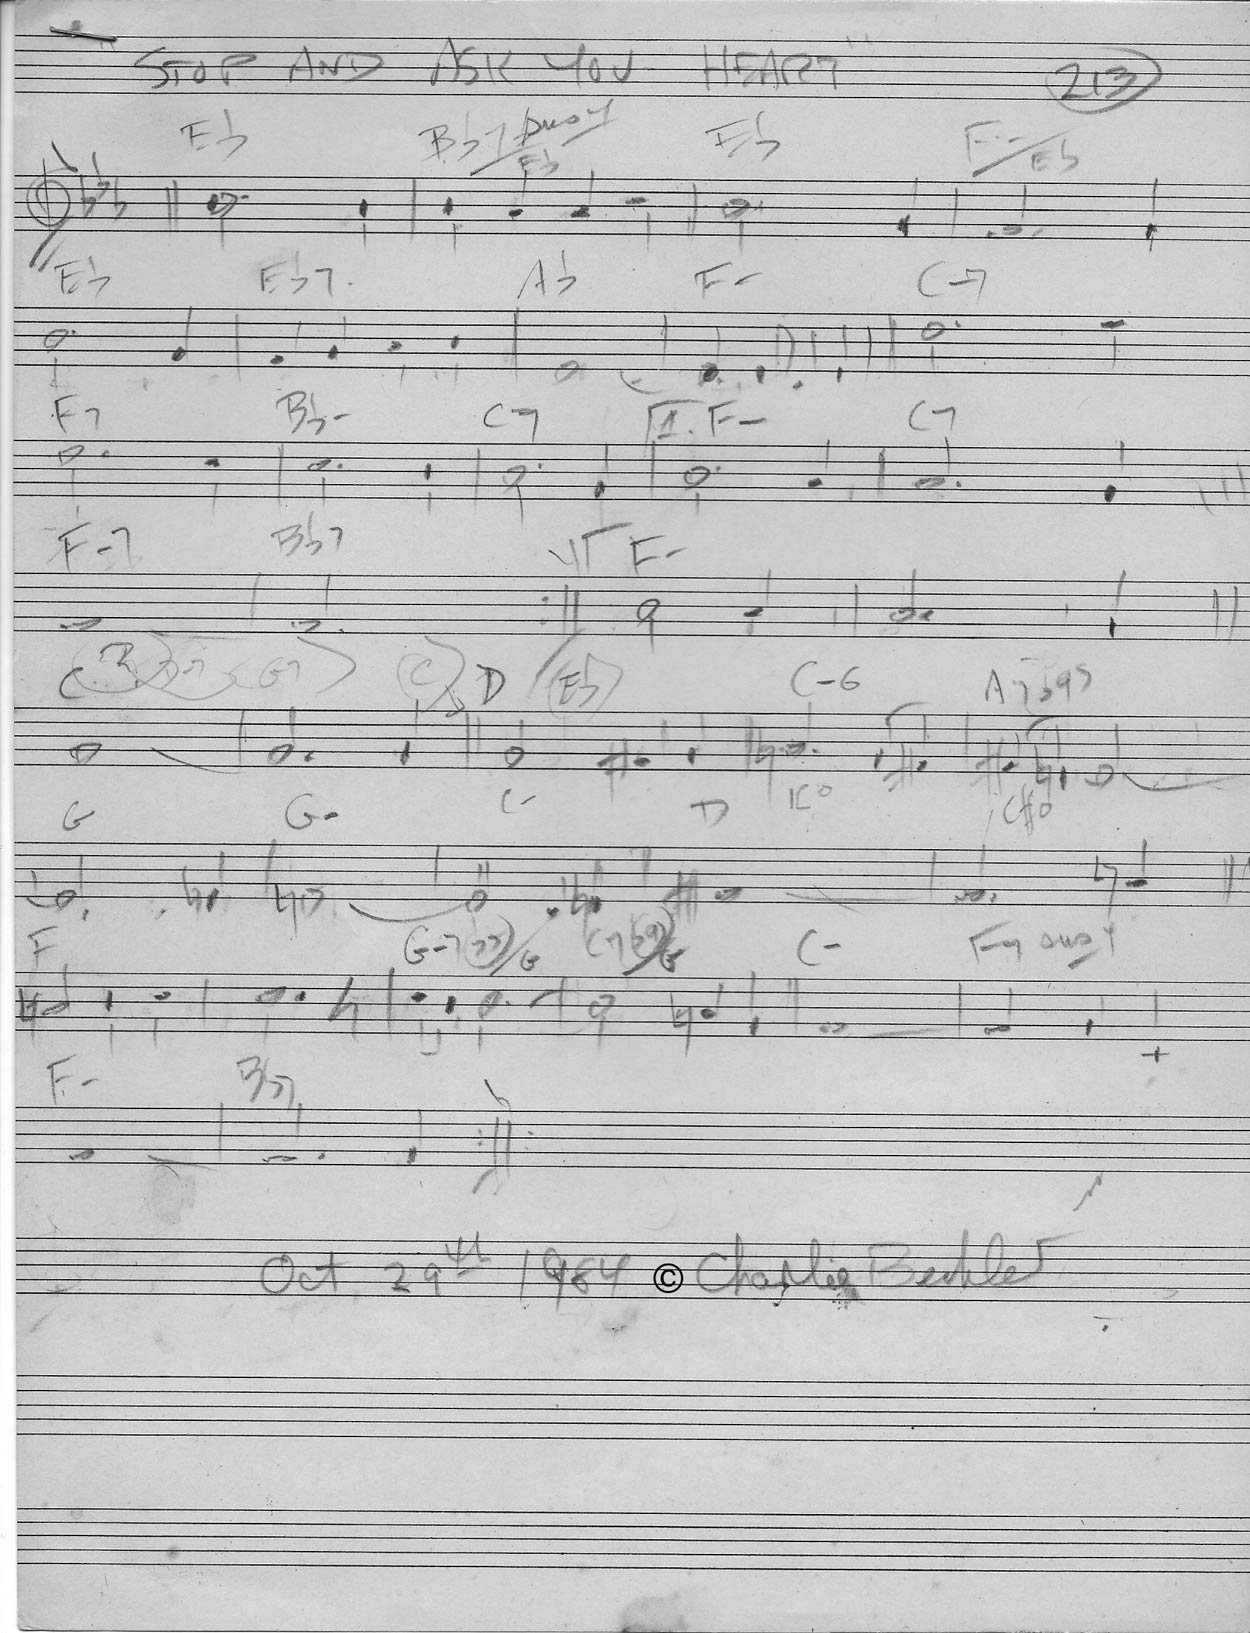 "STOP AND ASK YOU HEART" 213
Eb Bb7 sus4/Eb Eb F-/Eb
Eb Eb7 Ab F- C-7
F7 Bb- C7 1. F- C7
F-7 Bb7 F-
C D Eb C-6 A7b9
C- D C#o
G G-
F G-7(b5)/G C7(b9)/G C- F7 sus4
F- Bb7
Oct 29th 1984 © Charlie Bechler